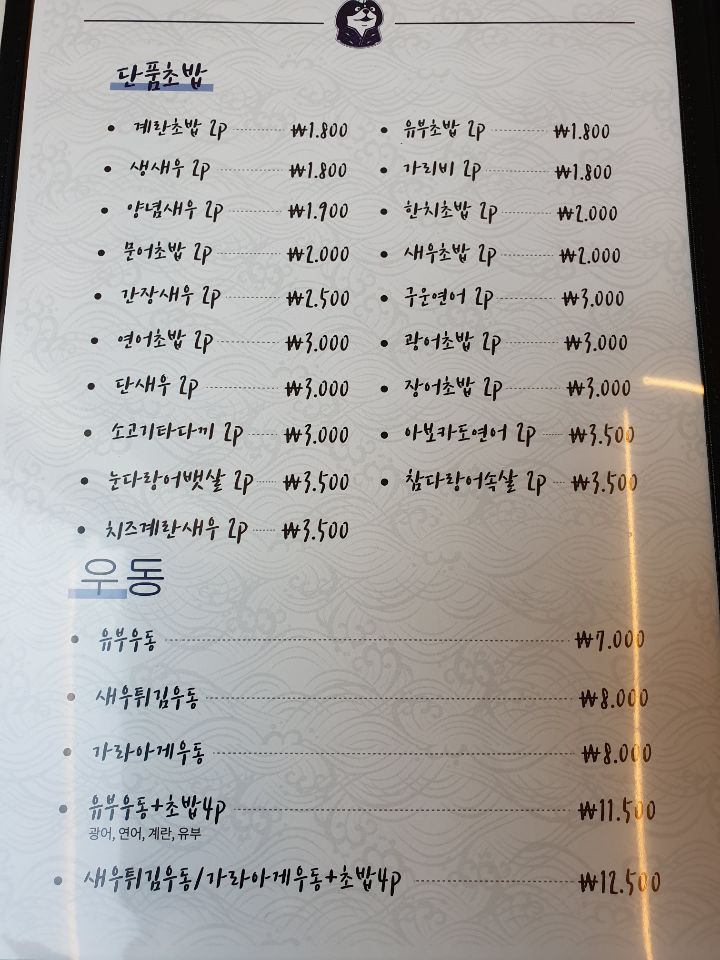 단품초밥
계란초밥 2p ₩1.800
유부초밥 2p ₩1.800
생새우 2p ₩1.800
가리비 2p ₩1.800
양념새우 2p ₩1.900
한치초밥 2p ₩2.000
문어초밥 2p ₩2.000
새우초밥 2p ₩2.000
간장새우 2p ₩2.500
구운연어 2p ₩3.000
연어초밥 2p ₩3.000
광어초밥 2p ₩3.000
단새우 2p ₩3.000
장어초밥 2p ₩3.000
소고기타다끼 2p ₩3.000
아보카도연어 2p ₩3.500
눈다랑어뱃살 2p ₩3.500
참다랑어속살 2p ₩3.500
치즈계란새우 2p ₩3.500
우동
유부우동 ₩7.000
새우튀김우동 ₩8.000
가라아게우동 ₩8.000
유부우동+초밥4p ₩11.500
광어, 연어, 계란, 유부
새우튀김우동/가라아게우동+초밥4p ₩12.500